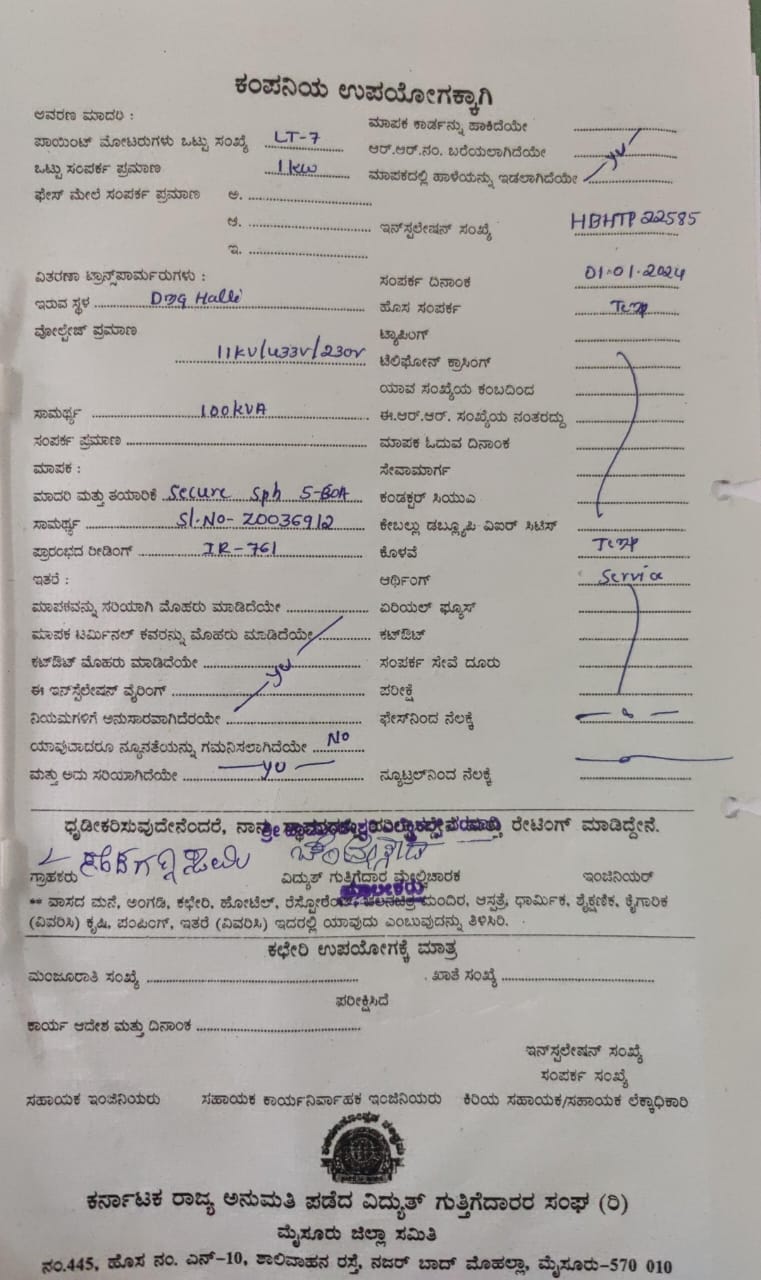 ಕಂಪನಿಯ ಉಪಯೋಗಕ್ಕಾಗಿ
ಆವರಣ ಮಾದರಿ :
ಮಾಪಕ ಕಾರ್ಡನ್ನು ಹಾಕಿದೆಯೇ
ಪಾಯಿಂಟ್ ಮೋಟರುಗಳು ಒಟ್ಟು ಸಂಖ್ಯೆ LT-7
ಆರ್.ಆರ್.ನಂ. ಬರೆಯಲಾಗಿದೆಯೇ
ಒಟ್ಟು ಸಂಪರ್ಕ ಪ್ರಮಾಣ 1kw
ಮಾಪಕದಲ್ಲಿ ಹಾಳೆಯನ್ನು ಇಡಲಾಗಿದೆಯೇ
ಫೇಸ್ ಮೇಲೆ ಸಂಪರ್ಕ ಪ್ರಮಾಣ ಅ.
ಆ.
ಇ.
ಇನ್‌ಸ್ಟಲೇಷನ್ ಸಂಖ್ಯೆ HBHTP22585
ವಿತರಣಾ ಟ್ರಾನ್ಸ್‌ಪಾರ್ಮರುಗಳು :
ಸಂಪರ್ಕ ದಿನಾಂಕ 01-01-2024
ಇರುವ ಸ್ಥಳ Dmg Halli
ಹೊಸ ಸಂಪರ್ಕ Temp
ವೋಲ್ಟೇಜ್ ಪ್ರಮಾಣ 11KV/433V/230V
ಟ್ಯಾಪಿಂಗ್
ಟೆಲಿಫೋನ್ ಕ್ರಾಸಿಂಗ್
ಯಾವ ಸಂಖ್ಯೆಯ ಕಂಬದಿಂದ
ಸಾಮರ್ಥ್ಯ 100KVA
ಈ.ಆರ್.ಆರ್. ಸಂಖ್ಯೆಯ ನಂತರದ್ದು
ಸಂಪರ್ಕ ಪ್ರಮಾಣ
ಮಾಪಕ ಓದುವ ದಿನಾಂಕ
ಮಾಪಕ :
ಸೇವಾಮಾರ್ಗ
ಮಾದರಿ ಮತ್ತು ತಯಾರಿಕೆ Secure Sph 5-60A
ಕಂಡಕ್ಟರ್ ಸಿಯುಎ
ಸಾಮರ್ಥ್ಯ Sl.No- Z0036912
ಕೇಬಲ್ಲು ಡಬ್ಲ್ಯೂಪಿ ವಿಐರ್ ಸಿಟಿಸ್
ಪ್ರಾರಂಭದ ರೀಡಿಂಗ್ IR-761
ಕೊಳವೆ Temp
ಇತರೆ :
ಆರ್ಥಿಂಗ್ Service
ಮಾಪಕವನ್ನು ಸರಿಯಾಗಿ ಮೊಹರು ಮಾಡಿದೆಯೇ
ಏರಿಯಲ್ ಫ್ಯೂಸ್
ಮಾಪಕ ಟರ್ಮಿನಲ್ ಕವರನ್ನು ಮೊಹರು ಮಾಡಿದೆಯೇ
ಕಟ್‌ಔಟ್
ಕಟ್‌ಔಟ್ ಮೊಹರು ಮಾಡಿದೆಯೇ
ಸಂಪರ್ಕ ಸೇವೆ ದೂರು
ಈ ಇನ್‌ಸ್ಟಲೇಷನ್ ವೈರಿಂಗ್
ಪರೀಕ್ಷೆ
ನಿಯಮಗಳಿಗೆ ಅನುಸಾರವಾಗಿದೆರಯೇ
ಫೇಸ್‌ನಿಂದ ನೆಲಕ್ಕೆ
ಯಾವುದಾದರೂ ನ್ಯೂನತೆಯನ್ನು ಗಮನಿಸಲಾಗಿದೆಯೇ No
ಮತ್ತು ಅದು ಸರಿಯಾಗಿದೆಯೇ
ನ್ಯೂಟ್ರಲ್‌ನಿಂದ ನೆಲಕ್ಕೆ
ಧೃಡೀಕರಿಸುವುದೇನೆಂದರೆ, ನಾನು ರೇಟಿಂಗ್ ಮಾಡಿದ್ದೇನೆ.
ಗ್ರಾಹಕರು
ವಿದ್ಯುತ್ ಗುತ್ತಿಗೆದಾರ ಮೇಲ್ವಿಚಾರಕ
ಇಂಜಿನಿಯರ್
ಮಾಲೀಕರು
** ವಾಸದ ಮನೆ, ಅಂಗಡಿ, ಕಛೇರಿ, ಹೋಟೆಲ್, ರೆಸ್ಟೋರೆಂಟ್, ಚಲನಚಿತ್ರ ಮಂದಿರ, ಆಸ್ಪತ್ರೆ, ಧಾರ್ಮಿಕ, ಶೈಕ್ಷಣಿಕ, ಕೈಗಾರಿಕ
(ವಿವರಿಸಿ) ಕೃಷಿ, ಪಂಪಿಂಗ್, ಇತರೆ (ವಿವರಿಸಿ) ಇದರಲ್ಲಿ ಯಾವುದು ಎಂಬುವುದನ್ನು ತಿಳಿಸಿರಿ.
ಕಛೇರಿ ಉಪಯೋಗಕ್ಕೆ ಮಾತ್ರ
ಮಂಜೂರಾತಿ ಸಂಖ್ಯೆ
ಖಾತೆ ಸಂಖ್ಯೆ
ಪರೀಕ್ಷಿಸಿದೆ
ಕಾರ್ಯ ಆದೇಶ ಮತ್ತು ದಿನಾಂಕ
ಇನ್‌ಸ್ಟಲೇಷನ್ ಸಂಖ್ಯೆ
ಸಂಪರ್ಕ ಸಂಖ್ಯೆ
ಸಹಾಯಕ ಇಂಜಿನಿಯರು
ಸಹಾಯಕ ಕಾರ್ಯನಿರ್ವಾಹಕ ಇಂಜಿನಿಯರು
ಕಿರಿಯ ಸಹಾಯಕ/ಸಹಾಯಕ ಲೆಕ್ಕಾಧಿಕಾರಿ
ಕರ್ನಾಟಕ ರಾಜ್ಯ ಅನುಮತಿ ಪಡೆದ ವಿದ್ಯುತ್ ಗುತ್ತಿಗೆದಾರರ ಸಂಘ (ರಿ)
ಮೈಸೂರು ಜಿಲ್ಲಾ ಸಮಿತಿ
ನಂ.445, ಹೊಸ ನಂ. ಎನ್-10, ಶಾಲಿವಾಹನ ರಸ್ತೆ, ನಜರ್ ಬಾದ್ ಮೊಹಲ್ಲಾ, ಮೈಸೂರು-570 010